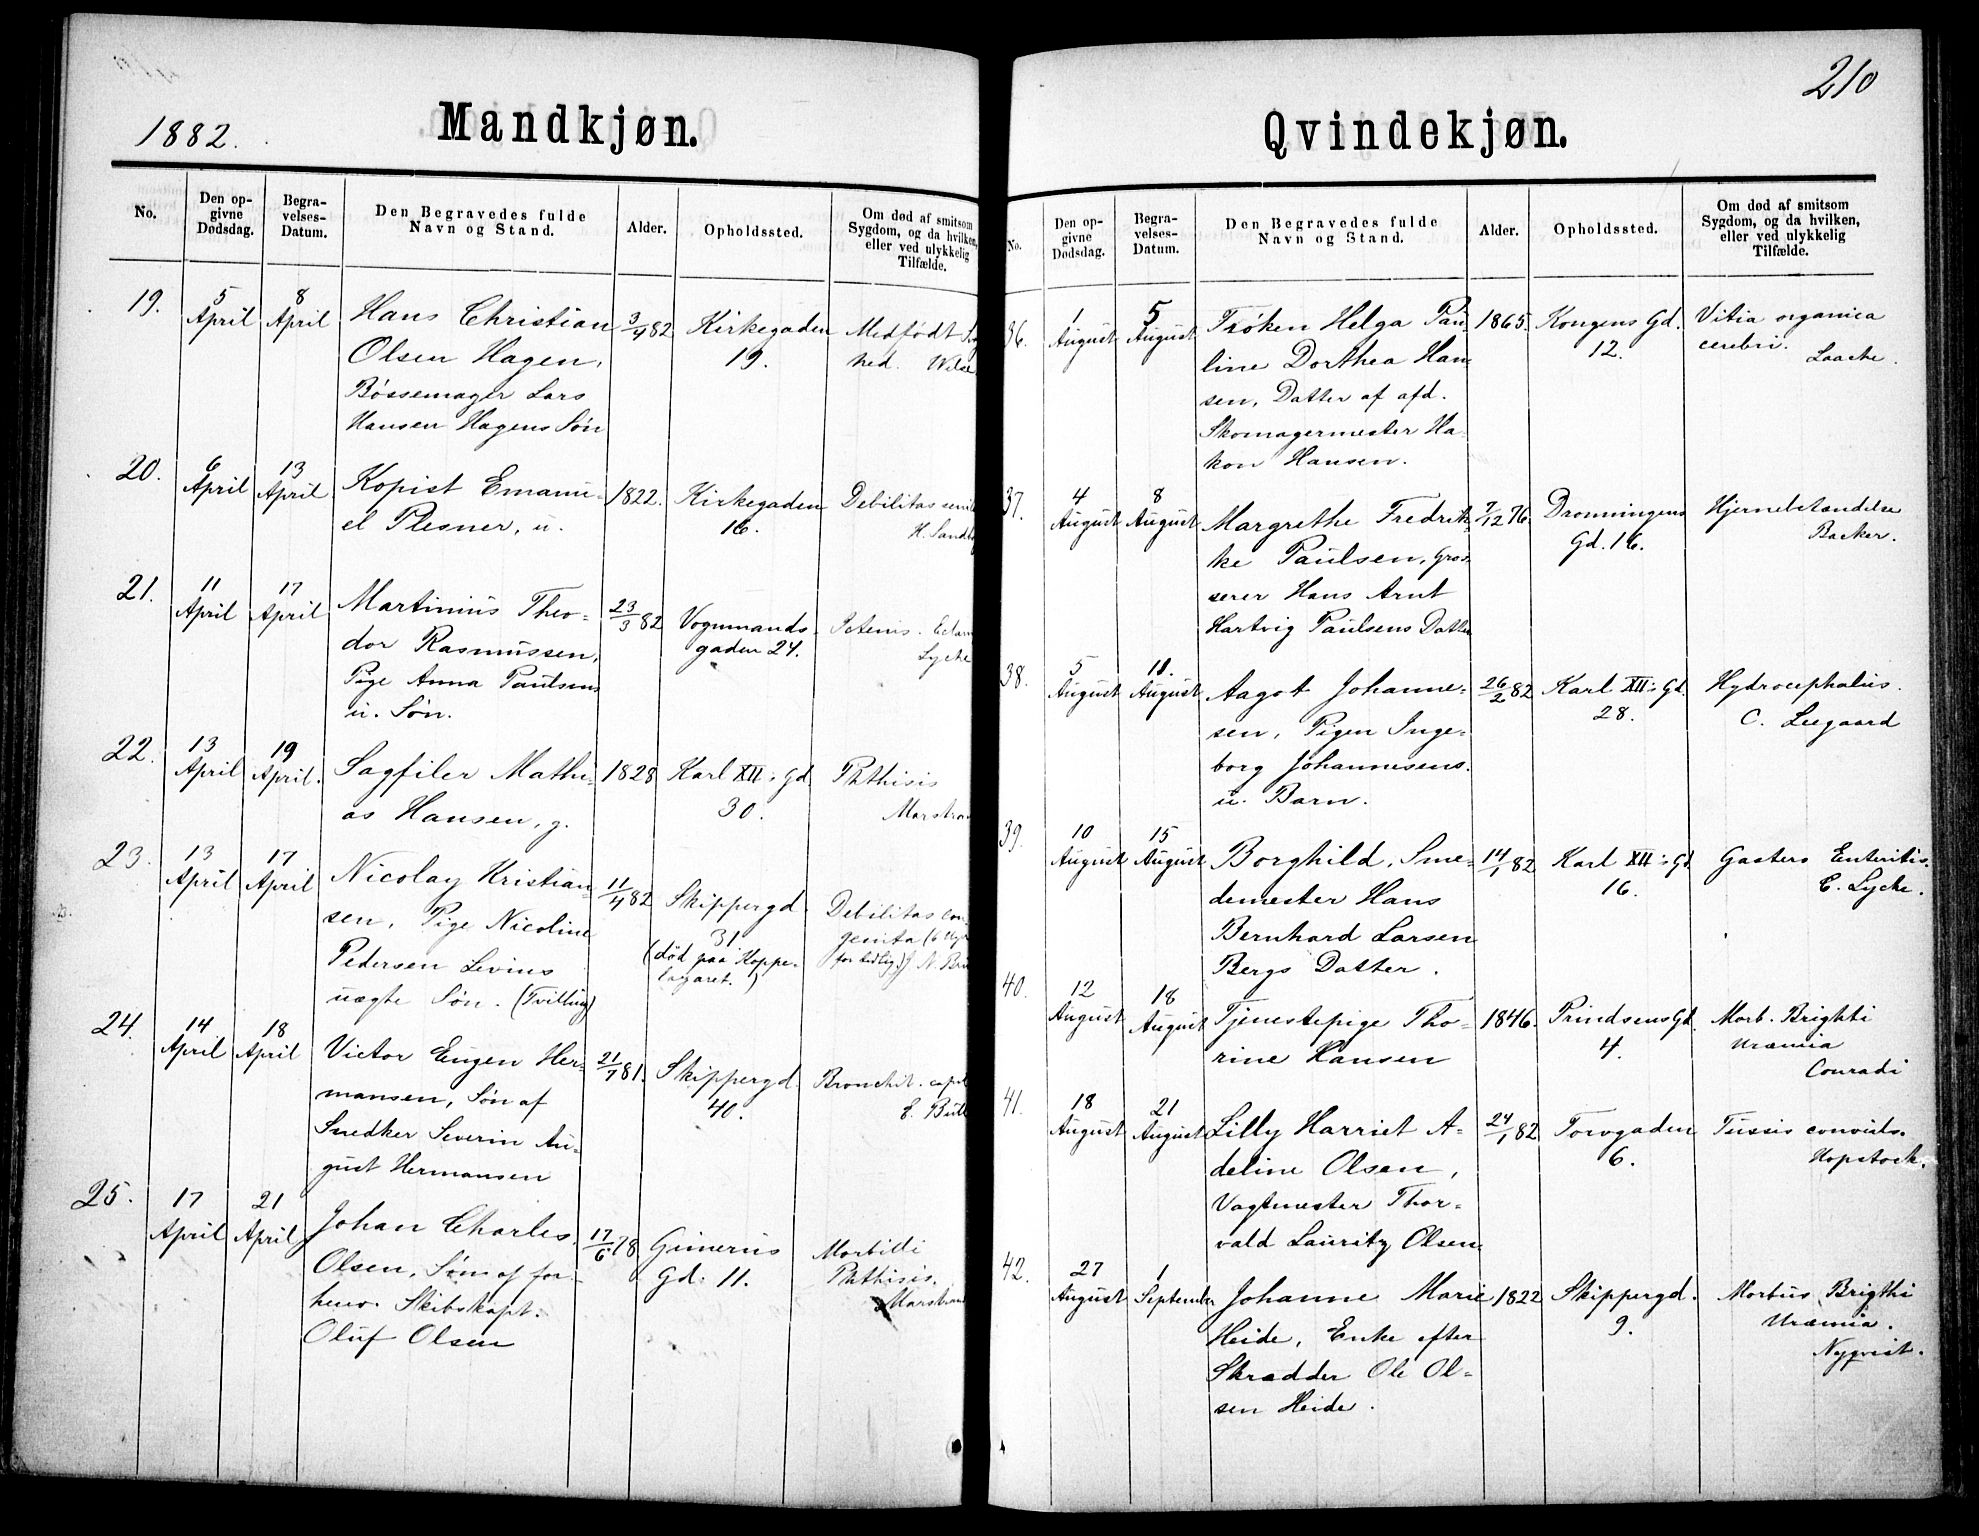 210
1882.
Mandkjøn.
No.
Den op-
givne
Dødsdag.
Begra-
velses-
Datum.
Den Begravedes fulde
Navn og Stand.
Alder.
Opholdssted.
Om død af smitsom
Sygdom, og da hvilken,
eller ved ulykkelig
Tilfælde.
19.
5
April
8
April
Hans Christian
Olsen Hagen,
Bössemager Lars
Hansen Hagens Søn
3/4 82
Kirkegaden
19.
Medfødt
hed.
20.
6
April
13
April
Kopist Emanu-
el Plesner, u.
1822.
Kirkegaden
16.
Debilitas
H.
21.
11
April
17
April
Martinius Theo-
dor Rasmussen,
Pige Anna Paulsens
u. Søn.
23/3 82
Vognmands-
gaden 24.
Icterus.
Lyche
22.
13
April
19
April.
Sagfiler Mathi-
as Hansen, g.
1828
Karl XII's Gd.
30.
Phthisis
23.
13
April
17
April
Nicolay Kristian-
sen, Pige Nicoline
Pedersen Levins
uægte Søn. (Tvilling)
11/4 82
Skippergd.
31
(død paa Koppe-
lazaret.)
Debilitas con-
genita (6
for tidlig) N.
24.
14
April
18
April
Victor Eugen Her-
mansen, Søn af
Snedker Severin Au-
gust Hermansen
21/7 81.
Skippergd.
40.
Bronchit.
25.
17
April
21
April
Johan Charles
Olsen, Søn af for-
henv. Skibskapt.
Oluf Olsen
17/6 78
Gunerius
Gd: 11.
Morbilli
Phthisis.
Qvindekjøn.
No.
Den op-
givne
Dødsdag.
Begra-
velses-
Datum.
Den Begravedes fulde
Navn og Stand.
Alder.
Opholdssted.
Om død af smitsom
Sygdom, og da hvilken,
eller ved ulykkelig
Tilfælde.
36.
1
August
5
August
Frøken Helga Pau-
line Dorthea Han-
sen, Datter af afd.
Skomagermester Ha-
kon Hansen.
1865.
Kongens Gd.
12.
Vitia organica
cerebri.
Laache.
37.
4
August
8
August
Margrethe Fredrik-
ke Paulsen, Gros-
serer Hans Arnt
Hartvig Paulsens Datter
7/12 76.
Dronningens
Gd. 16.
Hjernebetændelse
Backer.
38.
5
August
11.
August
Aagot Johanne-
sen, Pigen Inge-
borg Johannesens
u. Barn.
26/2 82
Karl XII's Gd.
28.
Hydrocephalus.
C. Leegaard
39.
10
August
15
August
Borghild, Sme-
demester Hans
Bernhard Larsen
Bergs Datter.
14/1 82
Karl XII's Gd
16.
Gastero Enteritis.
E. Lyche.
40.
12
August
18
August
Tjenestepige Tho-
rine Hansen
1846.
Prindsens Gd.
4.
Morb. Brighti
Uræmia
Conradi
41.
18
August
21
August
Lilly Harriet A-
deline Olsen,
Vagtmester Thor-
vald Lauritz Olsen
24/1 82
Torvgaden
6.
Tussis convuls.
Hopstock.
42.
27
August
1
September
Johanne Marie
Heide, Enke efter
Skrædder Ole Ol-
sen Heide.
1822
Skippergd.
9.
Morbus Brigthi
Uræmia.
Nyqvist.